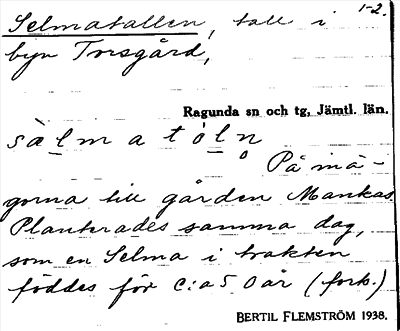 1-2.
Selmatallen, tall i
byn Torsgård,
Ragunda sn och tg, Jämtl. län.
sàl m a t ól n
På mä-
gorna till gården Mankas.
Planterades samma dag,
som en Selma i trakten
föddes för c:a 50 år (fork.)
BERTIL FLEMSTRÖM 1938.